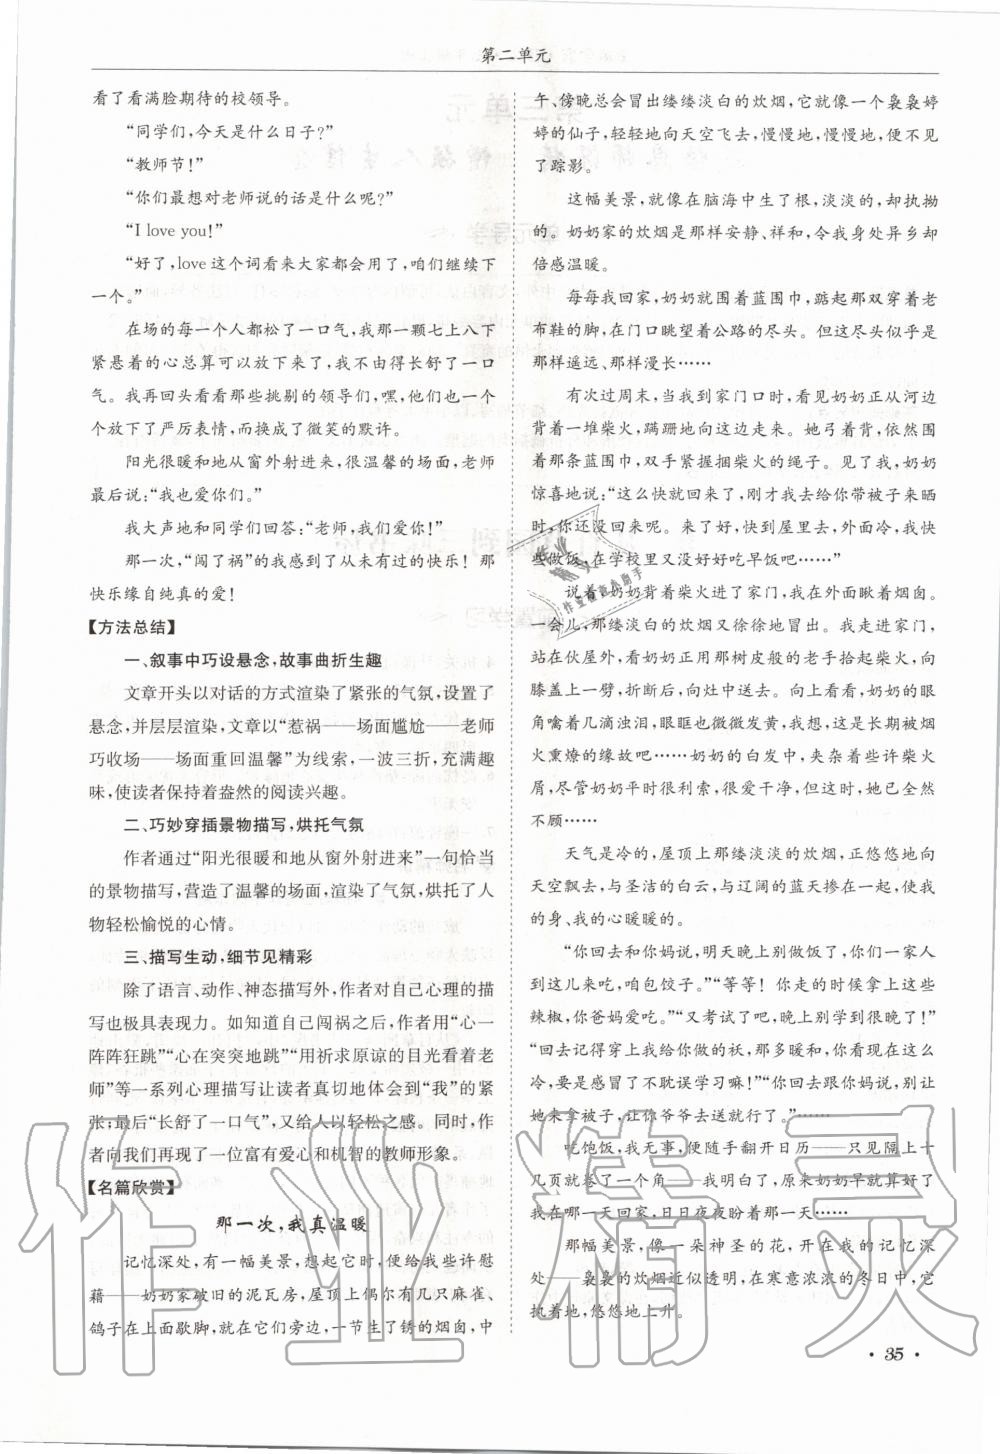 第二单元
看了看满脸期待的校领导。
“同学们,今天是什么日子?”
“教师节!”
“你们最想对老师说的话是什么呢?”
“I love you!”
“好了,love这个词看来大家都会用了,咱们继续下
一个。”
在场的每一个人都松了一口气,我那一颗七上八下
紧悬着的心总算可以放下来了,我不由得长舒了一口
气。我再回头看看那些挑剔的领导们,嘿,他们也一个
个放下了严厉表情,而换成了微笑的默许。
阳光很暖和地从窗外射进来,很温馨的场面,老师
最后说:“我也爱你们。”
我大声地和同学们回答:“老师,我们爱你!”
那一次,“闯了祸”的我感到了从未有过的快乐!那
快乐缘自纯真的爱!
【方法总结】
一、叙事中巧设悬念,故事曲折生趣
文章开头以对话的方式渲染了紧张的气氛,设置了
悬念,并层层渲染,文章以“惹祸——场面尴尬——老师
巧收场——场面重回温馨”为线索,一波三折,充满趣
味,使读者保持着盎然的阅读兴趣。
二、巧妙穿插景物描写,烘托气氛
作者通过“阳光很暖和地从窗外射进来”一句恰当
的景物描写,营造了温馨的场面,渲染了气氛,烘托了人
物轻松愉悦的心情。
三、描写生动,细节见精彩
除了语言、动作、神态描写外,作者对自己心理的描
写也极具表现力。如知道自己闯祸之后,作者用“心一
阵阵狂跳”“心在突突地跳”“用祈求原谅的目光看着老
师”等一系列心理描写让读者真切地体会到“我”的紧
张;最后“长舒了一口气”,又给人以轻松之感。同时,作
者向我们再现了一位富有爱心和机智的教师形象。
【名篇欣赏】
那一次,我真温暖
记忆深处,有一幅美景,想起它时,便给我些许慰
藉——奶奶家破旧的泥瓦房,屋顶上偶尔有几只麻雀、
鸽子在上面歇脚,就在它们旁边,一节生了锈的烟囱,中
午、傍晚总会冒出缕缕淡白的炊烟,它就像一个袅袅婷
婷的仙子,轻轻地向天空飞去,慢慢地,慢慢地,便不见
了踪影。
这幅美景,就像在脑海中生了根,淡淡的,却执拗
的。奶奶家的炊烟是那样安静、祥和,令我身处异乡却
倍感温暖。
每每我回家,奶奶就围着蓝围巾,踮起那双穿着老
布鞋的脚,在门口眺望着公路的尽头。但这尽头似乎是
那样遥远、那样漫长……
有次过周末,当我到家门口时,看见奶奶正从河边
背着一堆柴火,蹒跚地向这边走来。她弓着背,依然围
着那条蓝围巾,双手紧握捆柴火的绳子。见了我,奶奶
惊喜地说:“这么快就回来了,刚才我去给你带被子来晒
时,你还没回来呢。来了好,快到屋里去,外面冷,我快
些做饭,在学校里又没好好吃早饭吧……”
说着,奶奶背着柴火进了家门,我在外面瞅着烟囱。
一会儿,那缕淡白的炊烟又徐徐地冒出。我走进家门,
站在伙屋外,看奶奶正用那树皮般的老手拾起柴火,向
膝盖上一劈,折断后,向灶中送去。向上看看,奶奶的眼
角噙着几滴浊泪,眼眶也微微发黄,我想,这是长期被烟
火熏燎的缘故吧……奶奶的白发中,夹杂着些许柴火
屑,尽管奶奶平时很利索,很爱干净,但这时,她已全然
不顾……
天气是冷的,屋顶上那缕淡淡的炊烟,正悠悠地向
天空飘去,与圣洁的白云,与辽阔的蓝天掺在一起,使我
的身、我的心暖暖的。
“你回去和你妈说,明天晚上别做饭了,你们一家人
到这儿来吃,咱包饺子。”“等等!你走的时候拿上这些
辣椒,你爸妈爱吃。”“又考试了吧,晚上别学到很晚了!”
“回去记得穿上我给你做的袄,那多暖和,你看现在这么
冷,手是感冒了不耽误学习嘛!”“回去跟你妈说,别让
她来拿被子,让你爷爷去送就行了。”……
吃饱饭,我无事,便随手翻开日历——只见隔上十
几页就卷了一个角——我明白了,原来奶奶早就算好了
我在哪一天回家,日日夜夜盼着那一天……
那幅美景,像一朵神圣的花,开在我的记忆深
处——袅袅的炊烟近似透明,在寒意浓浓的冬日中,它
执着地,悠悠地上升。
· 35 ·
作业精灵